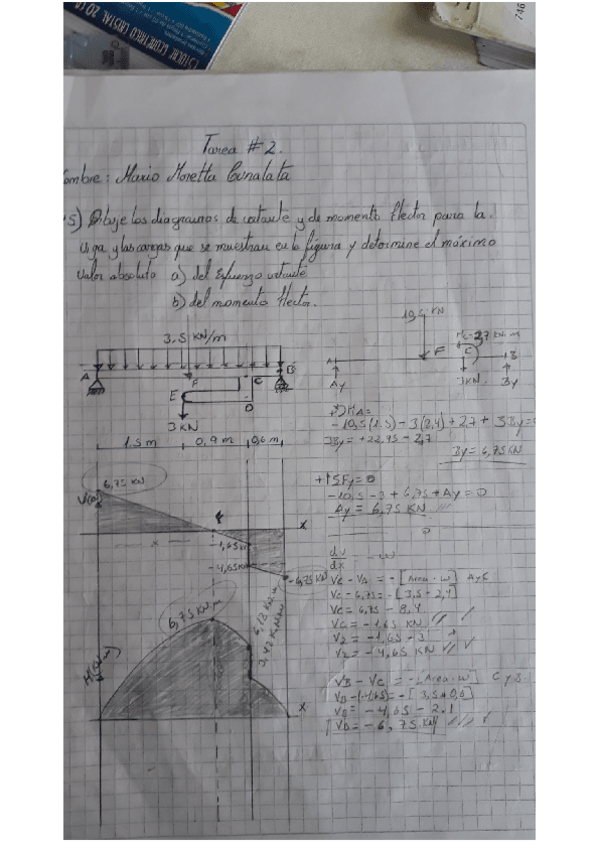 ESTUCHE GEOMETRICO CRISTAL 20
746
Tarea # 2.
ombre: Mario Moretta
5) Dibuje los diagramas de cortante y de momento flector para la
viga y las cargas que se muestran en la figura y determine el máximo
valor absoluto a) del esfuerzo cortante
b) del momento flector.
3.5 KN/m
A
B
F
C
E
D
3 KN
1.5 m
0,9 m
0,6 m
10,5 KN
F
C
A
B
3KN
Ay
By
-10,5(1.5) - 3(2,4) + 2,7 + 3By =
3By = +22,95 - 2,7
By = 6,75 KN
+↑ΣFy = 0
-10,5 - 3 + 6,75 + Ay = 0
Ay = 6,75 KN
dv/dx = -w
Vc - VA = -[Area · w] A y C
Vc - 6,75 = -[3,5 · 2,4]
Vc = 6,75 - 8,4
Vc = -1,65 KN
V2 = -1,65 - 3
V2 = -4,65 KN
VB - Vc = -[Area · w] C y B
VB - (-4,65) = -[3,5 * 0,6]
VB = -4,65 - 2.1
VB = -6,75 KN
6,75 KN
x
x
-1,65
-4,65
-6,75 KN
x